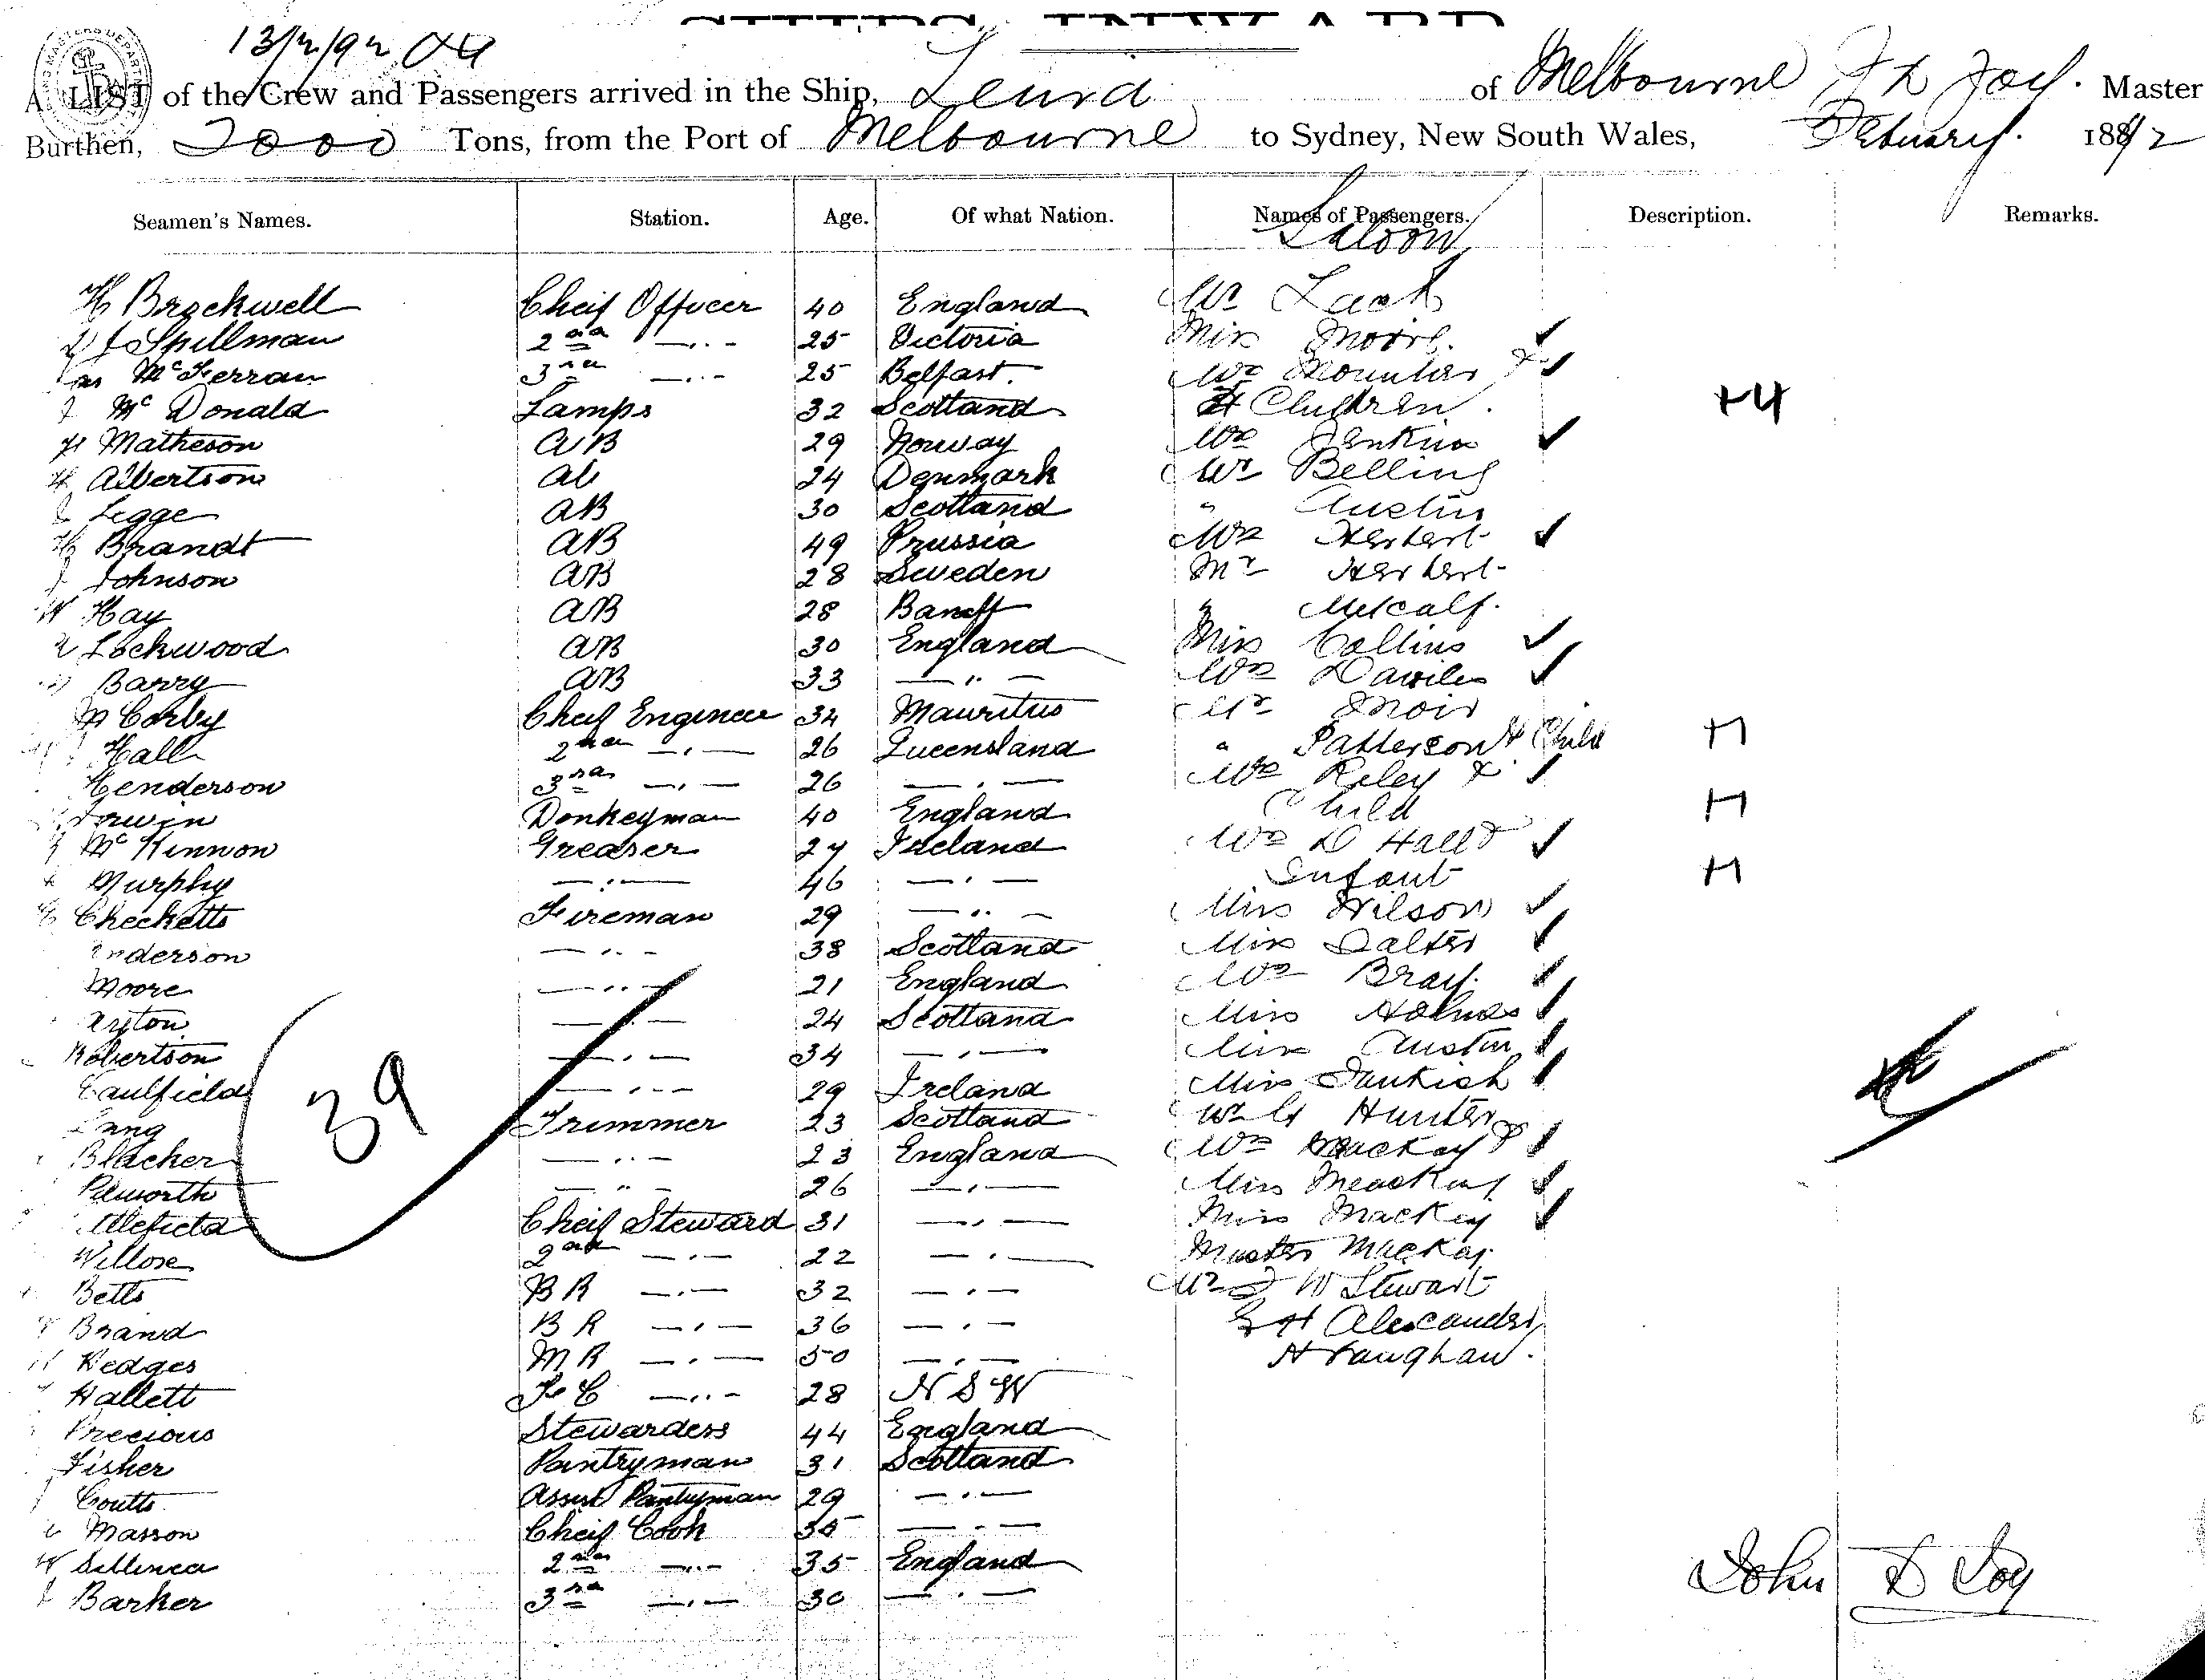 13/2/92
A LIST of the Crew and Passengers arrived in the Ship, of Melbourne J D Joy. Master
Burthen, 2000 Tons, from the Port of Melbourne to Sydney, New South Wales, Febuary. 1892
Seamen's Names. Station. Age. Of what Nation. Names of Passengers. Description. Remarks.
Saloon
H Brackwell Cheif Officer 40 England Mr Lack
Spillman 2nd —..— 25 Victoria Miss Moore. ✓
McFerran 3rd —..— 25 Belfast. Mrs Mountas & ✓
McDonald Lamps 32 Scotland 4 Children. +4
Matheson AB 29 Norway Mrs Jenkins ✓
H Albertson AB 24 Denmark Mr Belling
Legge AB 30 Scotland " Austin
H Brandt AB 49 Prussia Mrs Herbert ✓
J Johnson AB 28 Sweden Mr Herbert
W Hay AB 28 Banff " Metcalf.
Lockwood AB 30 England Miss Collins ✓
Barry AB 33 —"— Mrs Davies ✓
M Corby Cheif Engineer 34 Mauritus Mr Moir
Hall 2nd —.— 26 Queensland " Patterson & Child +1
Henderson 3rd —.— 26 —.— Mrs Riley & ✓
Irwin Donkeyman 40 England Child +1
McKinnon Greaser 27 Ireland Mrs D Hall & ✓
Murphy —.— 46 —.— Infant +1
Checketts Fireman 29 —..— Miss Wilson ✓
Anderson —..— 38 Scotland Miss Salter ✓
Moore —..— 21 England Mrs Bray. ✓
Ayton —.— 24 Scotland Miss Holmes ✓
Robertson —.— 34 —.— Miss Austin ✓
Caulfield —.— 29 Ireland Miss ✓
Lang Trimmer 23 Scotland Hunter
39
Blacher —..— 23 England Mrs Mackay & ✓
Pilworth —"— 26 —.— Miss Mackay ✓
Cheif Steward 31 —.— Miss Mackay ✓
Willose 2nd —.— 22 —.— Master Mackay.
Betts BR —.— 32 —.— Mr J W Stewart
Brand BR —.— 36 —.— G H Alexander
Hedges MR —.— 50 —.— H Vaughan.
Hallett F C —..— 28 N S W
Precious Stewardess 44 England
Fisher Pantryman 31 Scotland
Coutts Assist Pantryman 29 —.—
Masson Cheif Cook 35 —.—
W 2nd —..— 35 England
Barker 3rd —.— 30 —.—
John D Joy